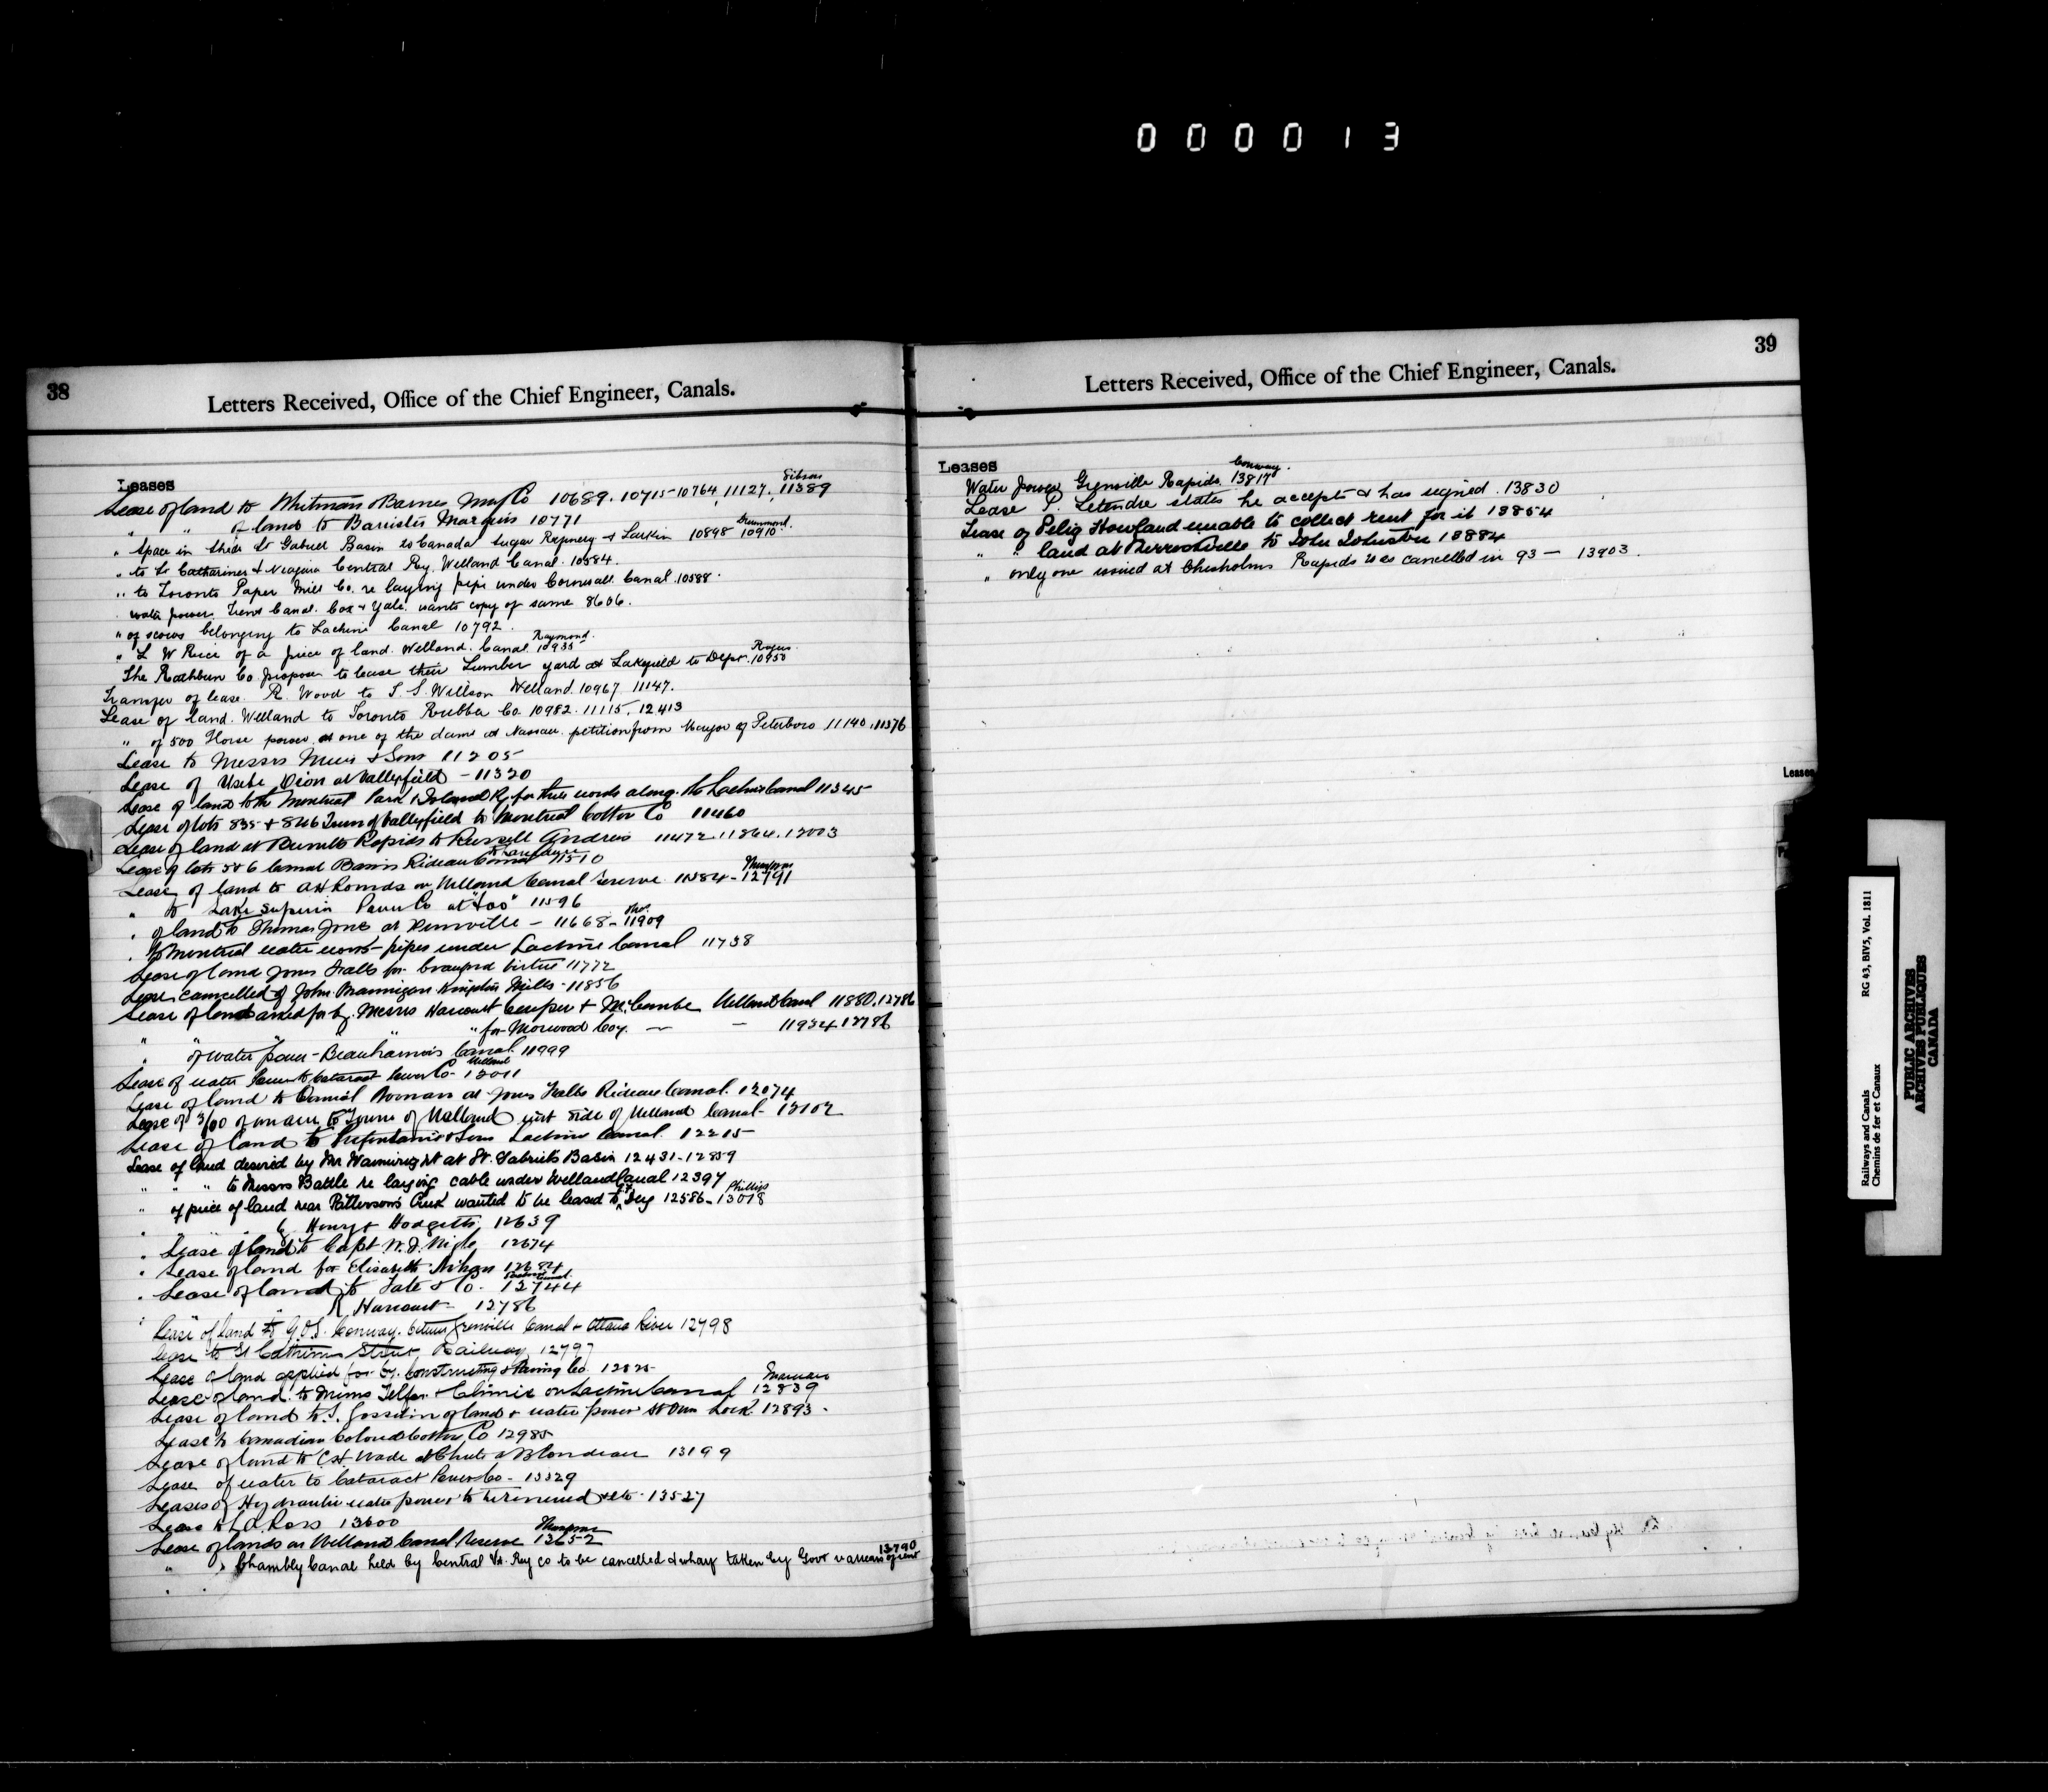 000013
38
Letters Received, Office of the Chief Engineer, Canals.
Leases
Lease of land to Whitman & Barnes Mnfg Co 10689. 10715-10764, 11127, 11389 Gibson
" " of land to Barrister Marquis 10771
" Space in shed St Gabriel Basin to Canada Sugar Refinery & Larkin 10898 10910 Drummond.
" to St Catharines & Niagara Central Ry. Welland Canal. 10584.
" to Toronto Paper Mill Co. re laying pipe under Cornwall Canal. 10588.
water power. Trent Canal. Cox & Yale. wants copy of same 8606.
" of scows belonging to Lachine Canal 10792.
" L W Rice of a piece of land. Welland. Canal. 10935 Raymond.
The Rathbun Co. propose to lease their Lumber yard at Lakefield to Dept. 10950 Rogers
Transfer of lease. R. Wood to T. S. Willson Welland. 10967 11147.
Lease of land. Welland to Toronto Rubber Co. 10982. 11115. 12413
" of 500 Horse power at one of the dams at Nassau. petition from Mayor of Peterboro 11140. 11376
Lease to Messrs Muir & Sons 11205
Lease of Dion at Valleyfield - 11320
Lease of land to the Montreal Park & Island Ry for three along the Lachine Canal 11345
Lease of lots 835 & 846 Town of Valleyfield to Montreal Cotton Co 11460
Lease of land at Burritts Rapids to Russell Andrews 11472. 11864. 12003
Lease of lots 5 & 6 Canal Basin Rideau Canal 11510
Lease of land to A H Rounds on Welland Canal Reserve 11584 - 12791 Thompson
" to Lake Superior Power Co at "Soo" 11596
" of land to Thomas Jones at - 11668 - 11909
" to Montreal water works - pipes under Lachine Canal 11738
Lease of land Jones Falls for Crawford Virtue 11772
Lease cancelled of John Brannigan Kingston Mills - 11856
Lease of land asked for by Messrs Harcourt Cowper & McCombe Welland Canal 11880, 12786
" " " for Morwood Coy. — — 11934 12786
" " of water power - Beauharnois Canal. 11999
Lease of water Power to Cataract Power Co - Welland 12011
Lease of land to Daniel Roman at Jones Falls Rideau Canal. 12074
Lease of 3/100 of an acre to Town of Welland west side of Welland Canal - 12102
Lease of land to & Sons Lachine Canal. 12215
Lease of land desired by Mr Wainwright at St. Gabriels Basin 12431 - 12859
" " " to Messrs Battle re laying cable under Welland Canal 12397
" of piece of land near Pattersons Creek wanted to be leased to Guy 12586 - 13018 Phillips
" " " by Henry & Hodgetts, 12639
" Lease of land to Capt. W. J. 12674
" Lease of land for Elisabeth 12684
" Lease of land to Tate & Co. - Lachine Canal. 12744
" " " R. Harcourt - 12786
Lease of land to G.O.S. Conway. between Grenville Canal & Ottawa River 12798
Lease to St Catharines Street Railway 12797
Lease of land applied for by Constructing & Paving Co. 12825
Lease of land to Mrrs Telfer & Climie on Lachine Canal 12839
Lease of land to J. Gosselin of land & water power St Ours Lock. 12893 -
Lease to Canadian Colored Cotton Co 12985
Lease of land to C H Wade at Chute à Blondeau 13199
Lease of water to Cataract Power Co - 13329
Leases of Hydraulic water power to be renewed &c - 13527
Lease to L.A. Ross 13600
Lease of lands on Welland Canal Reserve 13652 Thompson
" " Chambly Canal held by Central Vt. Ry co to be cancelled & wharf taken by Govt v arrears of rent 13790
39
Letters Received, Office of the Chief Engineer, Canals.
Leases
Water power Grenville Rapids. 13817 Conway.
Lease P. Letendre states he accepts & has signed. 13830
Lease of Pelig Howland unable to collect rent for it 13854
" " land at Merrickville to John Johnston 13884
" only one issued at Chisholms Rapids was cancelled in 93 — 13903.
Leases
Railways and Canals
Chemins de fer et Canaux
RG 43, BIV5, Vol. 1811
PUBLIC ARCHIVES
ARCHIVES PUBLIQUES
CANADA